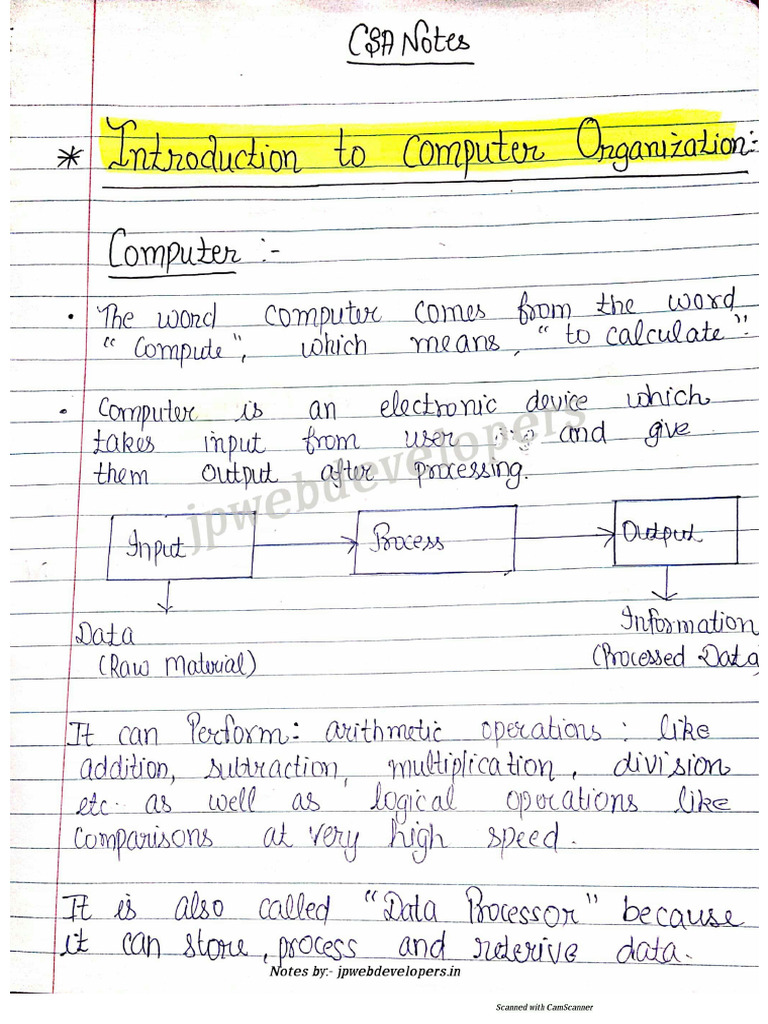 CSA Notes
* Introduction to Computer Organization:-
Computer :-
• The word computer comes from the word
"Compute", which means, "to calculate".
• Computer is an electronic device which
takes input from user and give
them output after processing.
jpwebdevelopers
Input Process Output
Data Information
(Raw Material) (Processed Data)
It can Perform:- arithmetic operations : like
addition, subtraction, multiplication, division
etc. as well as logical operations like
comparisons at very high speed.
It is also called "Data Processor" because
it can store, process and reterive data.
Notes by:- jpwebdevelopers.in
Scanned with CamScanner